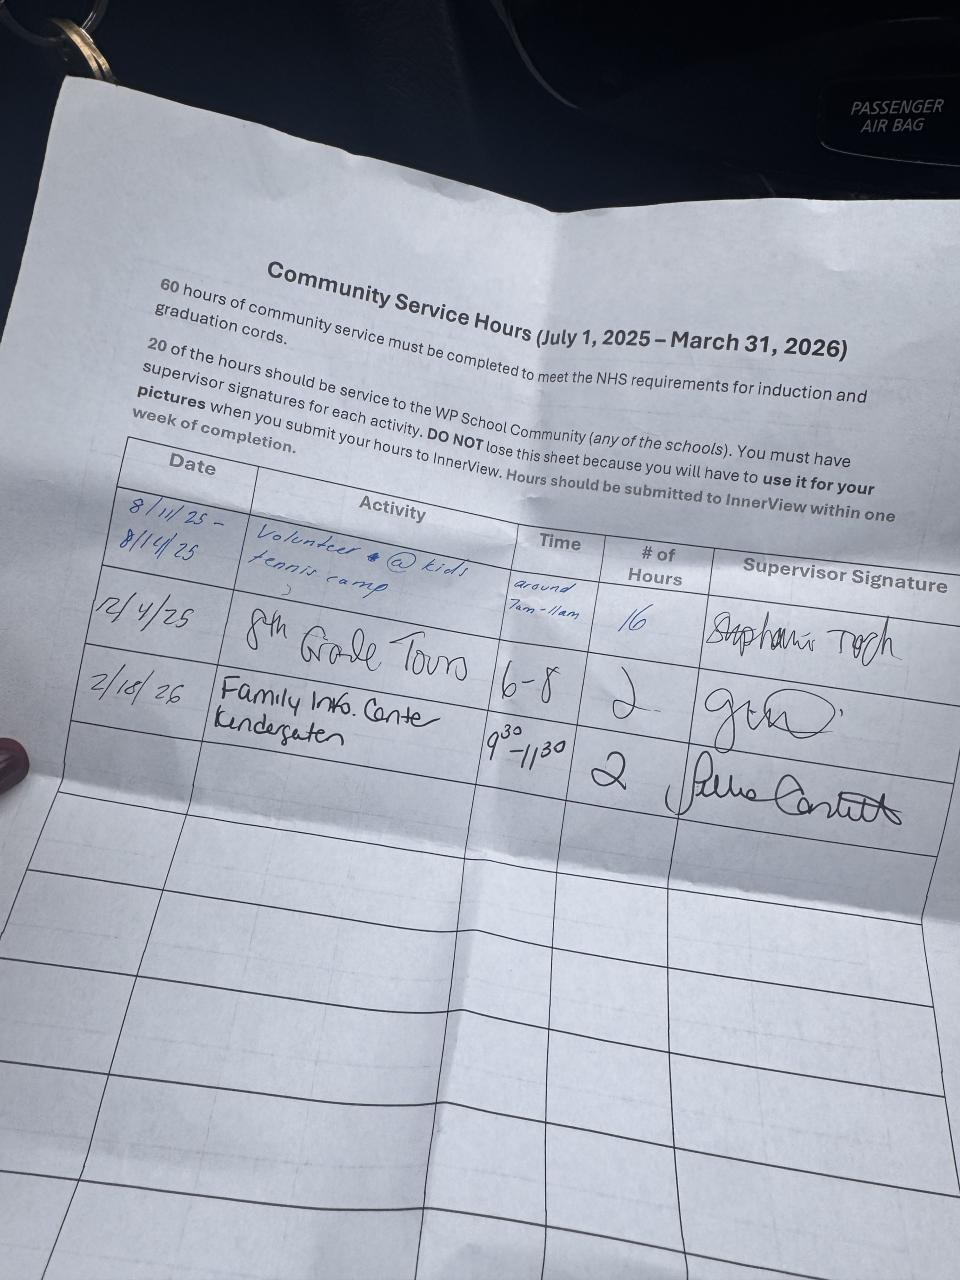 PASSENGER
AIR BAG
Community Service Hours (July 1, 2025 – March 31, 2026)
60 hours of community service must be completed to meet the NHS requirements for induction and
graduation cords.
20 of the hours should be service to the WP School Community (any of the schools). You must have
supervisor signatures for each activity. DO NOT lose this sheet because you will have to use it for your
pictures when you submit your hours to InnerView. Hours should be submitted to InnerView within one
week of completion.
Date Activity Time # of Hours Supervisor Signature
8/11/25 - 8/14/25 Volunteer @ kids tennis camp around 7am-11am 16
12/4/25 8th Grade Tours 6-8 2
2/18/26 Family Info. Center Kindergaten 9:30-11:30 2